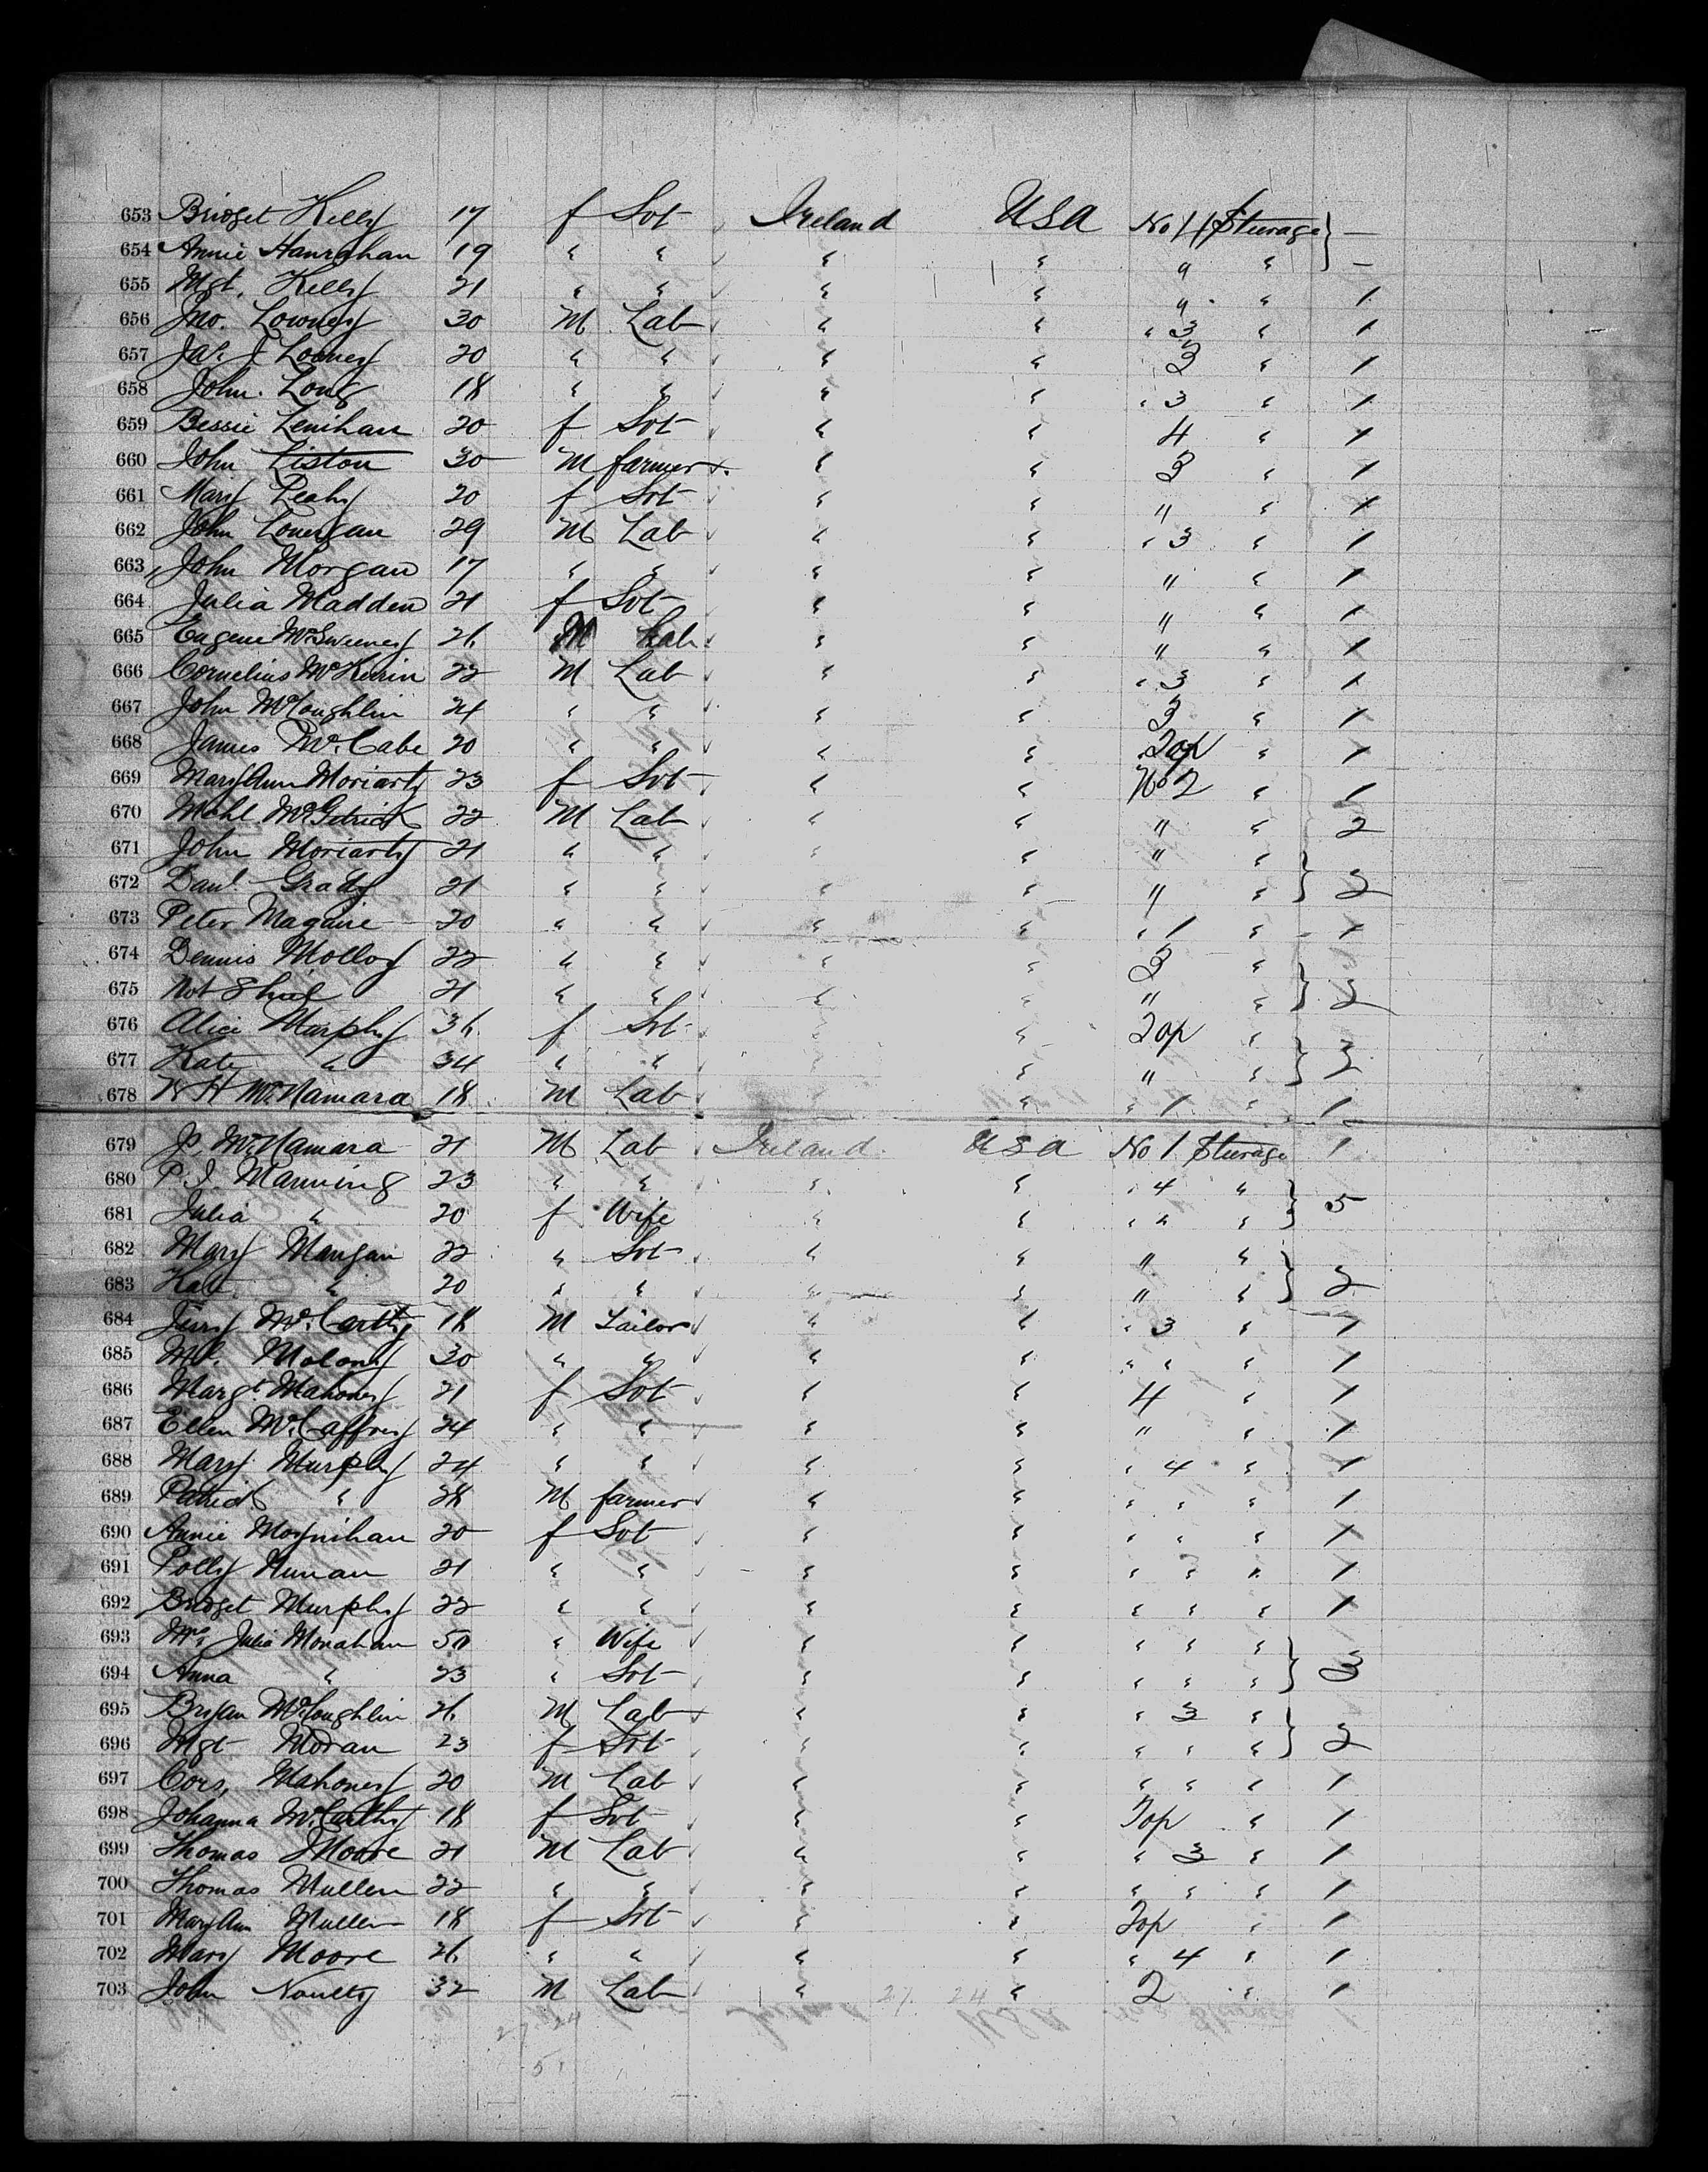 653 Bridget Kelly 17 f Svt Ireland USA No 1 Steurage } —
654 Annie Hanrahan 19 " " " " " " —
655 Mgt. Kelly 21 " " " " " " 1
656 Jno. Lowney 30 M Lab " " " 3 " 1
657 Jas. J Looney 20 " " " " 3 " 1
658 John Long 18 " " " " " 3 " 1
659 Bessie Lenihan 20 f Svt " " 4 " 1
660 John Liston 30 M farmer " " 3 " 1
661 Mary Leahy 20 f Svt " " " " 1
662 John Lonergan 29 M Lab " " " 3 " 1
663 John Morgan 17 " " " " " " 1
664 Julia Madden 21 f Svt " " " " 1
665 Eugene McSweeney 26 M Lab " " " " 1
666 Cornelius 22 M Lab " " " 3 " 1
667 John McLoughlin 24 " " " " 3 " 1
668 James McCabe 20 " " " " Top " 1
669 Mary Ann Moriarty 23 f Svt " " No 2 " 1
670 Mchl. 22 M Lab " " " " 2
671 John Moriarty 21 " " " " " " }
672 Danl. Grady 21 " " " " " " } 2
673 Peter Maguire 20 " " " " " 1 " 1
674 Dennis Molloy 22 " " " " 3 "
675 Not Shipd 21 " " " " " " } 2
676 Alice Murphy 36 f Svt " Top "
677 Kate " 34 " " " " " } 2
678 McNamara 18 M Lab " " 1 " 1
679 McNamara 21 M Lab Ireland USA No 1 Steurage 1
680 P. J. Manning 23 " " " " " 4 " }
681 Julia " 20 f Wife " " " " " } 5
682 Mary Mangan 22 " Svt " " " " }
683 Kate " 20 " " " " " " } 2
684 Jerry McCarthy 18 M Tailor " " " 3 " 1
685 Ml. Molony 30 " " " " " " " 1
686 Margt. Mahoney 21 f Svt " " 4 " 1
687 Ellen McCaffrey 24 " " " " " " 1
688 Mary Murphy 24 " " " " " 4 " 1
689 Patrick " 28 M farmer " " " " " 1
690 Annie Moynihan 20 f Svt " " " " " 1
691 Polly 21 " " " " " " " 1
692 Bridget Murphy 22 " " " " " " " 1
693 Mrs. Julia Monahan 50 " Wife " " " " " }
694 Anna " 23 " Svt " " " " " } 3
695 Bryan McLoughlin 26 M Lab " " " 3 " }
696 Mgt Moran 23 f Svt " " " " " } 2
697 Cors. Mahoney 20 M Lab " " " " " 1
698 Johanna McCarthy 18 f Svt " " Top " 1
699 Thomas Moore 21 M Lab " " " 3 " 1
700 Thomas Mullen 22 " " " " " " " 1
701 Mary Ann Mullen 18 f Svt " " Top " 1
702 Mary Moore 26 " " " " " 4 " 1
703 John Naulty 32 M Lab " " 2 " 1